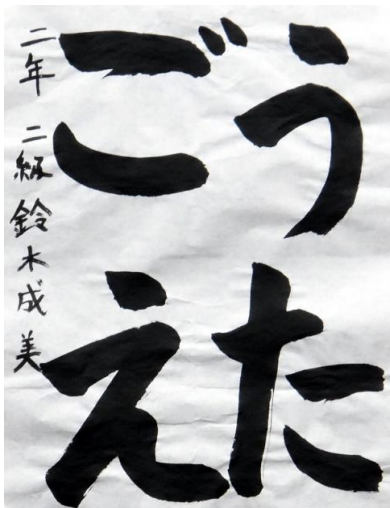 うた
ごえ
二年 二級 鈴木成美